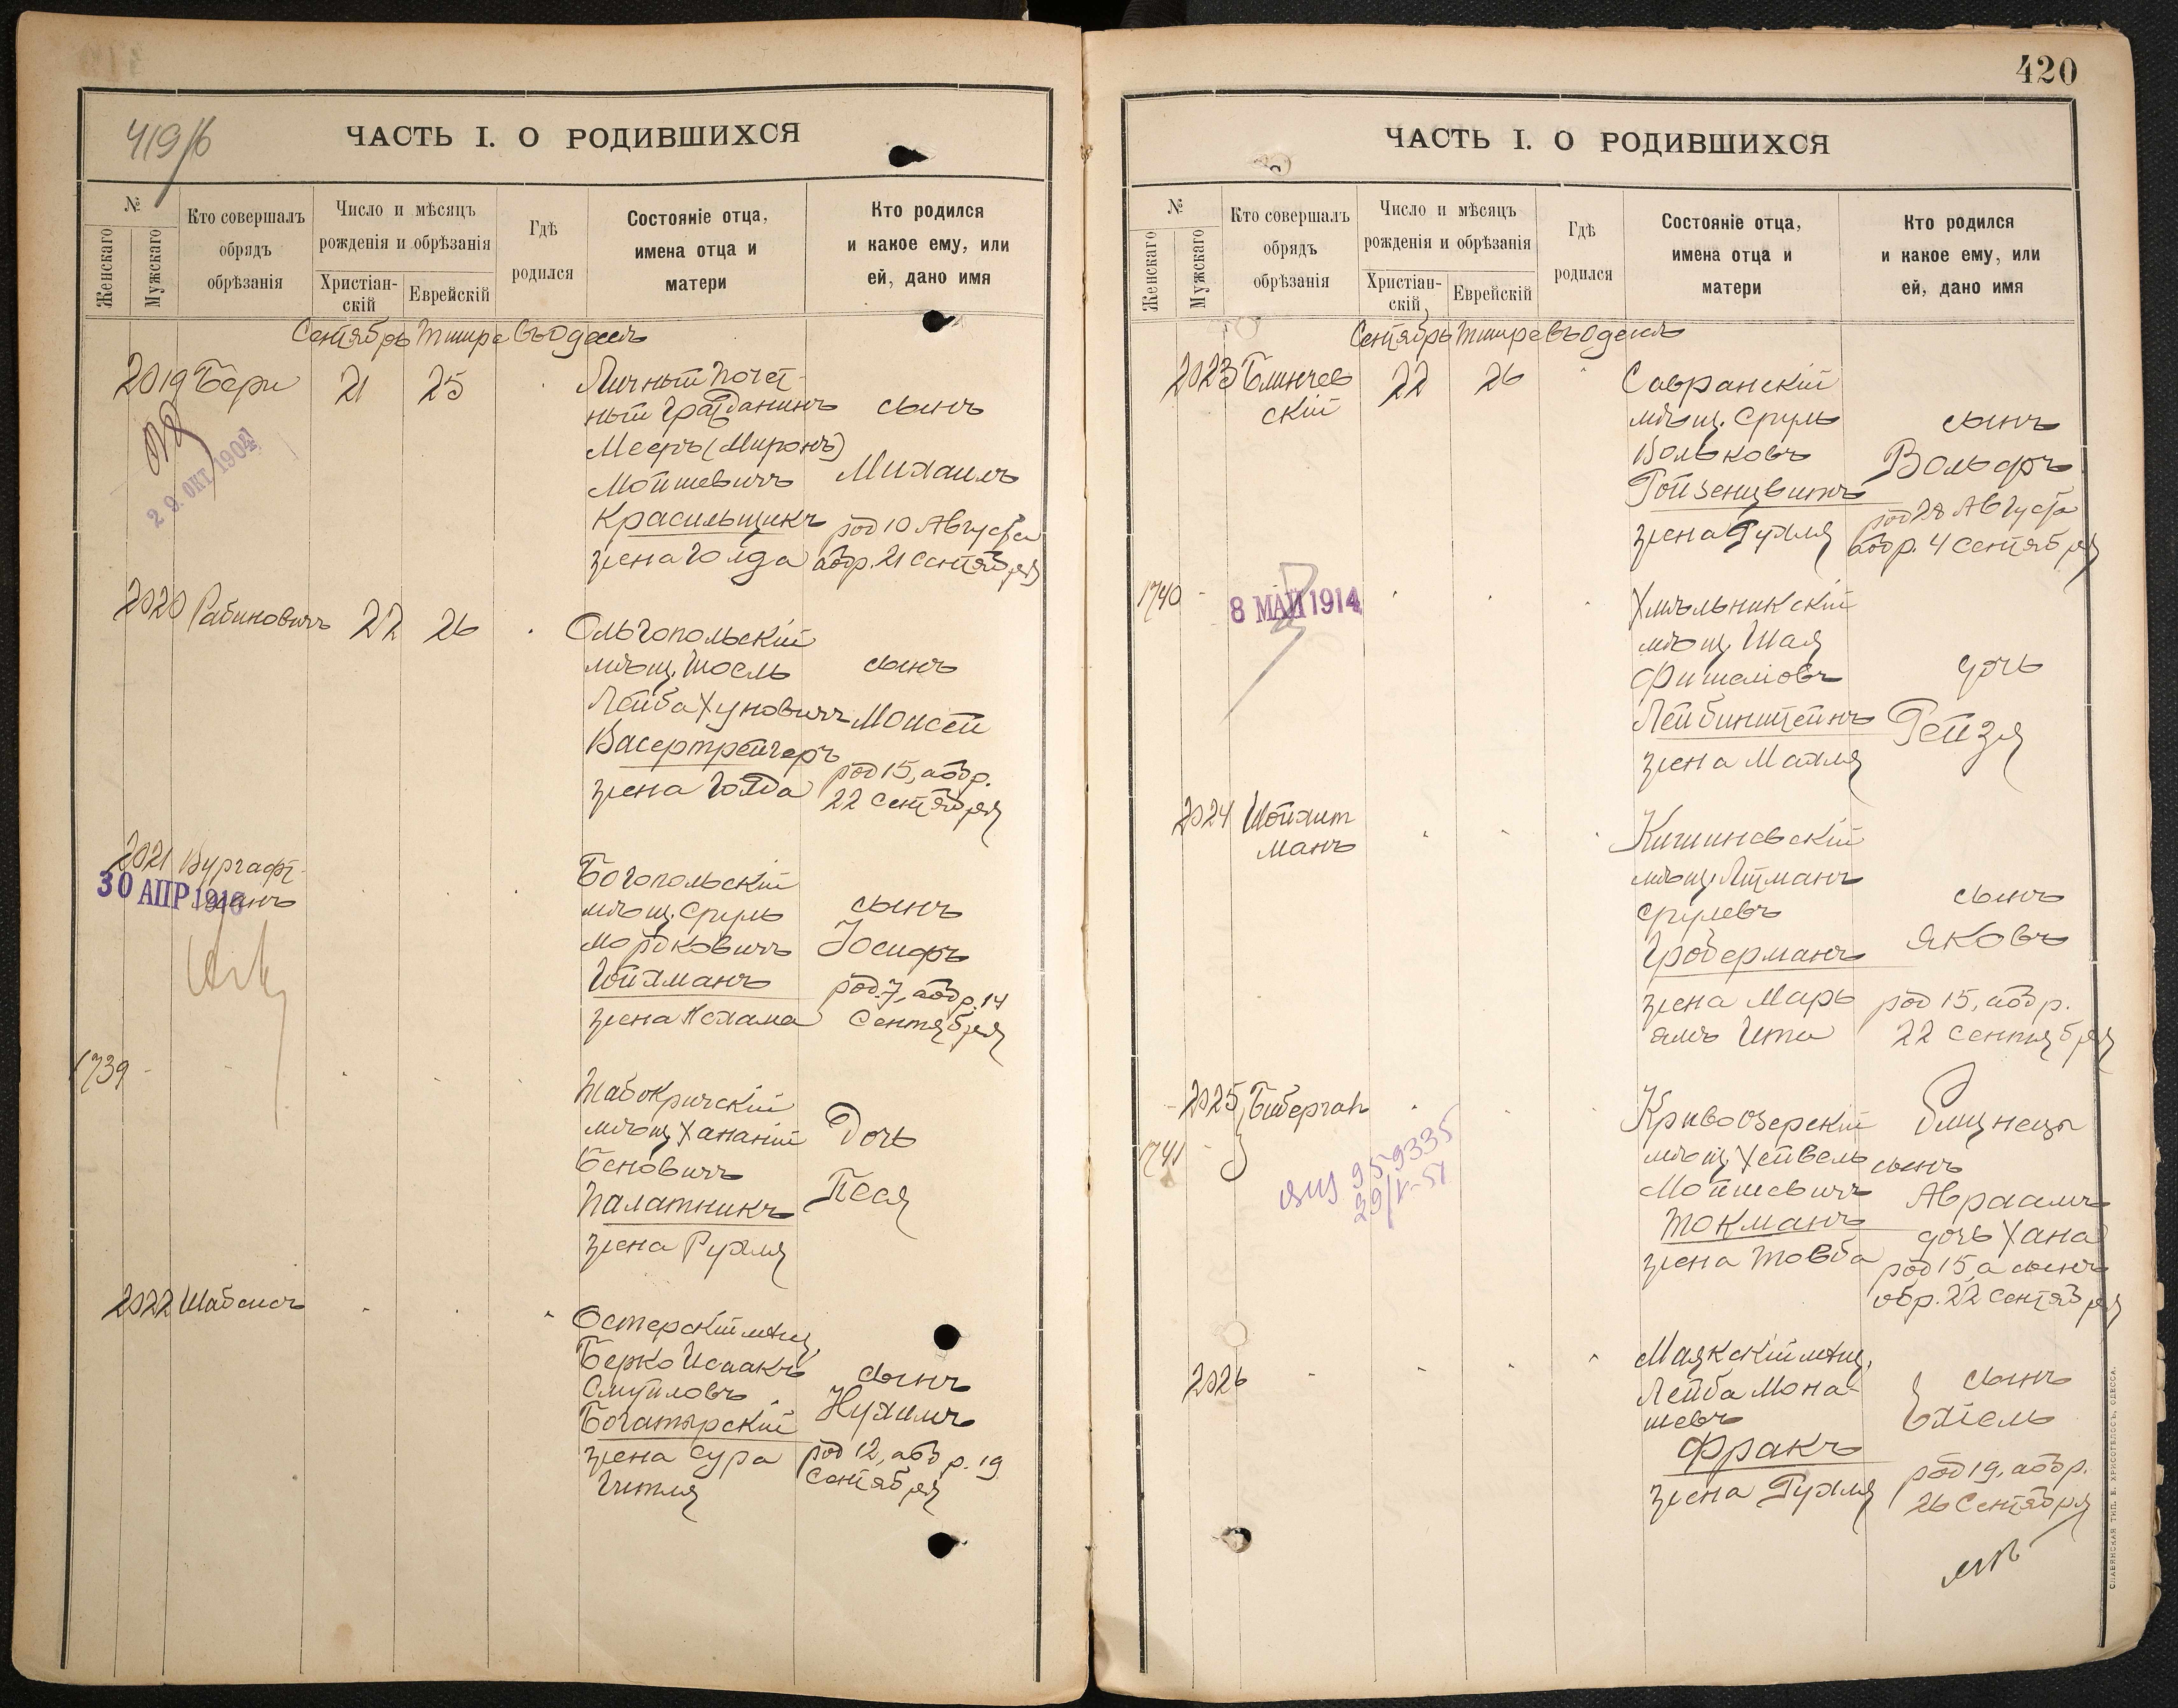 419/б
ЧАСТЬ I. О РОДИВШИХСЯ
№
Женскаго
Мужскаго
Кто совершалъ
обрядъ
обрѣзанія
Число и мѣсяцъ
рожденія и обрѣзанія
Христіан-
скій
Еврейскій
Гдѣ
родился
Состояніе отца,
имена отца и
матери
Кто родился
и какое ему, или
ей, дано имя
Сентябрь Тишре Въ Одессѣ
2019 Бери 21 25
29. ОКТ 1904
Личный почет-
ный гражданинъ
Мееръ (Миронъ)
Мойшевичъ
Красильщикъ
жена Голда
сынъ
Михаилъ
род 10 Августа
обр. 21 Сентября
2020 Рабиновичъ 22 26
Ольгопольскій
мѣщ. Іосль
Лейба Хуновичъ
Васертрейгеръ
жена Голда
сынъ
Моисей
род 15, обр.
22 Сентября
2021 Вургафт-
манъ
30 АПР 191
Богопольскій
мѣщ. Сруль
Мордковичъ
Гойхманъ
жена Нехама
сынъ
Іосифъ
род. 7, обр. 14
Сентября
1739 -
Жабокричскій
мѣщ Хананій
Беновичъ
Палатникъ
жена Рухля
Дочь
Песя
2022 Шабсисъ
Остерскій мѣщ.
Берко Исаакъ
Смуйловъ
Богатырскій
жена Сура
Гитля
сынъ
Нухимъ
род 12, обр. 19
Сентября
420
ЧАСТЬ I. О РОДИВШИХСЯ
№
Женскаго
Мужскаго
Кто совершалъ
обрядъ
обрѣзанія
Число и мѣсяцъ
рожденія и обрѣзанія
Христіан-
скій
Еврейскій
Гдѣ
родился
Состояніе отца,
имена отца и
матери
Кто родился
и какое ему, или
ей, дано имя
Сентябрь Тишре Въ Одессѣ
2023 Блинчев
скій 22 26
Савранскій
мѣщ. Сруль
Вольковъ
Гойзенцвитъ
жена Рухля
сынъ
Вольфъ
род 28 Августа
обр. 4 Сентября
1740 -
8 МАЙ 1914
Хмѣльникскій
мѣщ. Шая
Фишелiовъ
Лейбинштейнъ
жена Махля
дочь
Рейзя
2024 Шойхит
манъ
Кишиневскій
мѣщ. Литманъ
Срулевъ
Гроберманъ
жена Марь
ямъ Ита
сынъ
Яковъ
род 15, обр.
22 Сентября
2025 Биберган
1741 -
959335
29/V-51
Кривоозерскій
мѣщ. Хейвель
Мойшевичъ
Токманъ
жена Товба
Близнецы
сынъ
Авраамъ
дочь Хана
род 15, а сынъ
обр. 22 Сентября
2026 -
Маякскій мѣщ.
Лейба Мона-
шевъ
Фракъ
жена Рухля
сынъ
Ехіель
род 19, обр.
26 Сентября
СЛАВЯНСКАЯ ТИП. Е. ХРИСОГЕЛОСЪ, ОДЕССА.